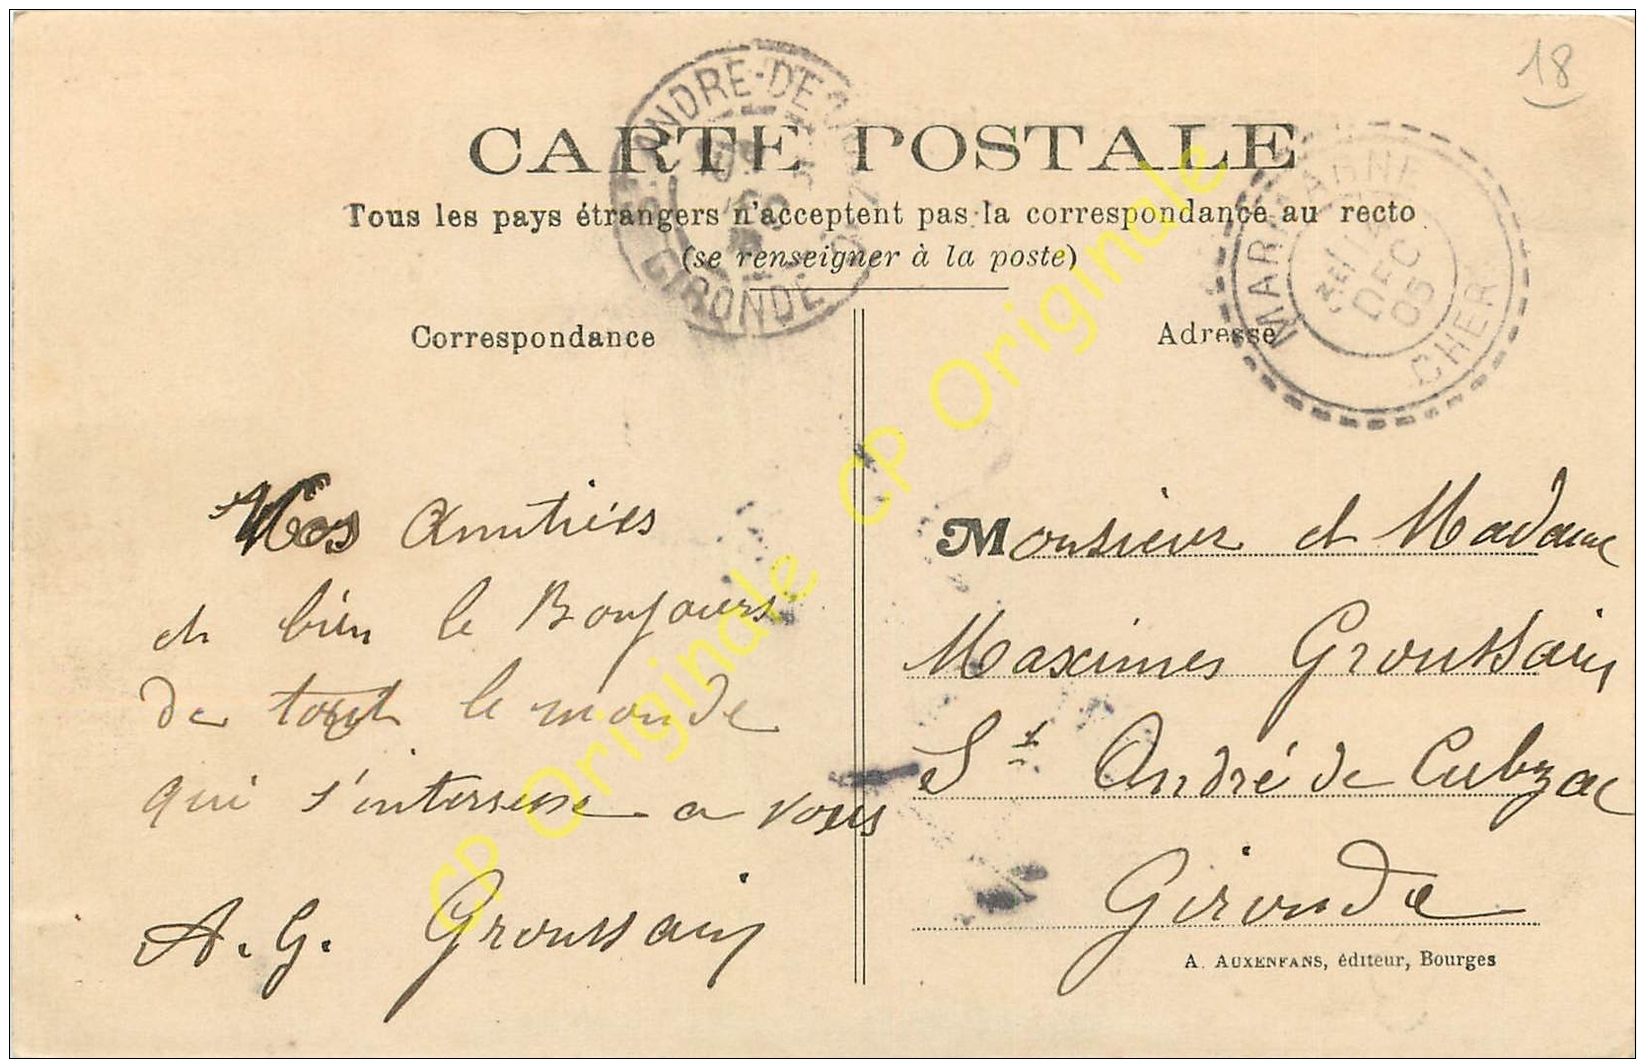 18
CARTE POSTALE
Tous les pays étrangers n'acceptent pas la correspondance au recto
(se renseigner à la poste)
ANDRE-DE-
GIRONDE
MARMAGNE
14
DEC
05
CHER
Correspondance
Nos Amitiées
et bien le Bonjours
de tout le monde
qui s'interesse a vous
A. G. Groussain
Adresse
Monsieur et Madame
Maximes Groussain
St André de Cubzac
Gironde
A. AUXENFANS, éditeur, Bourges
CP Originale CP Originale